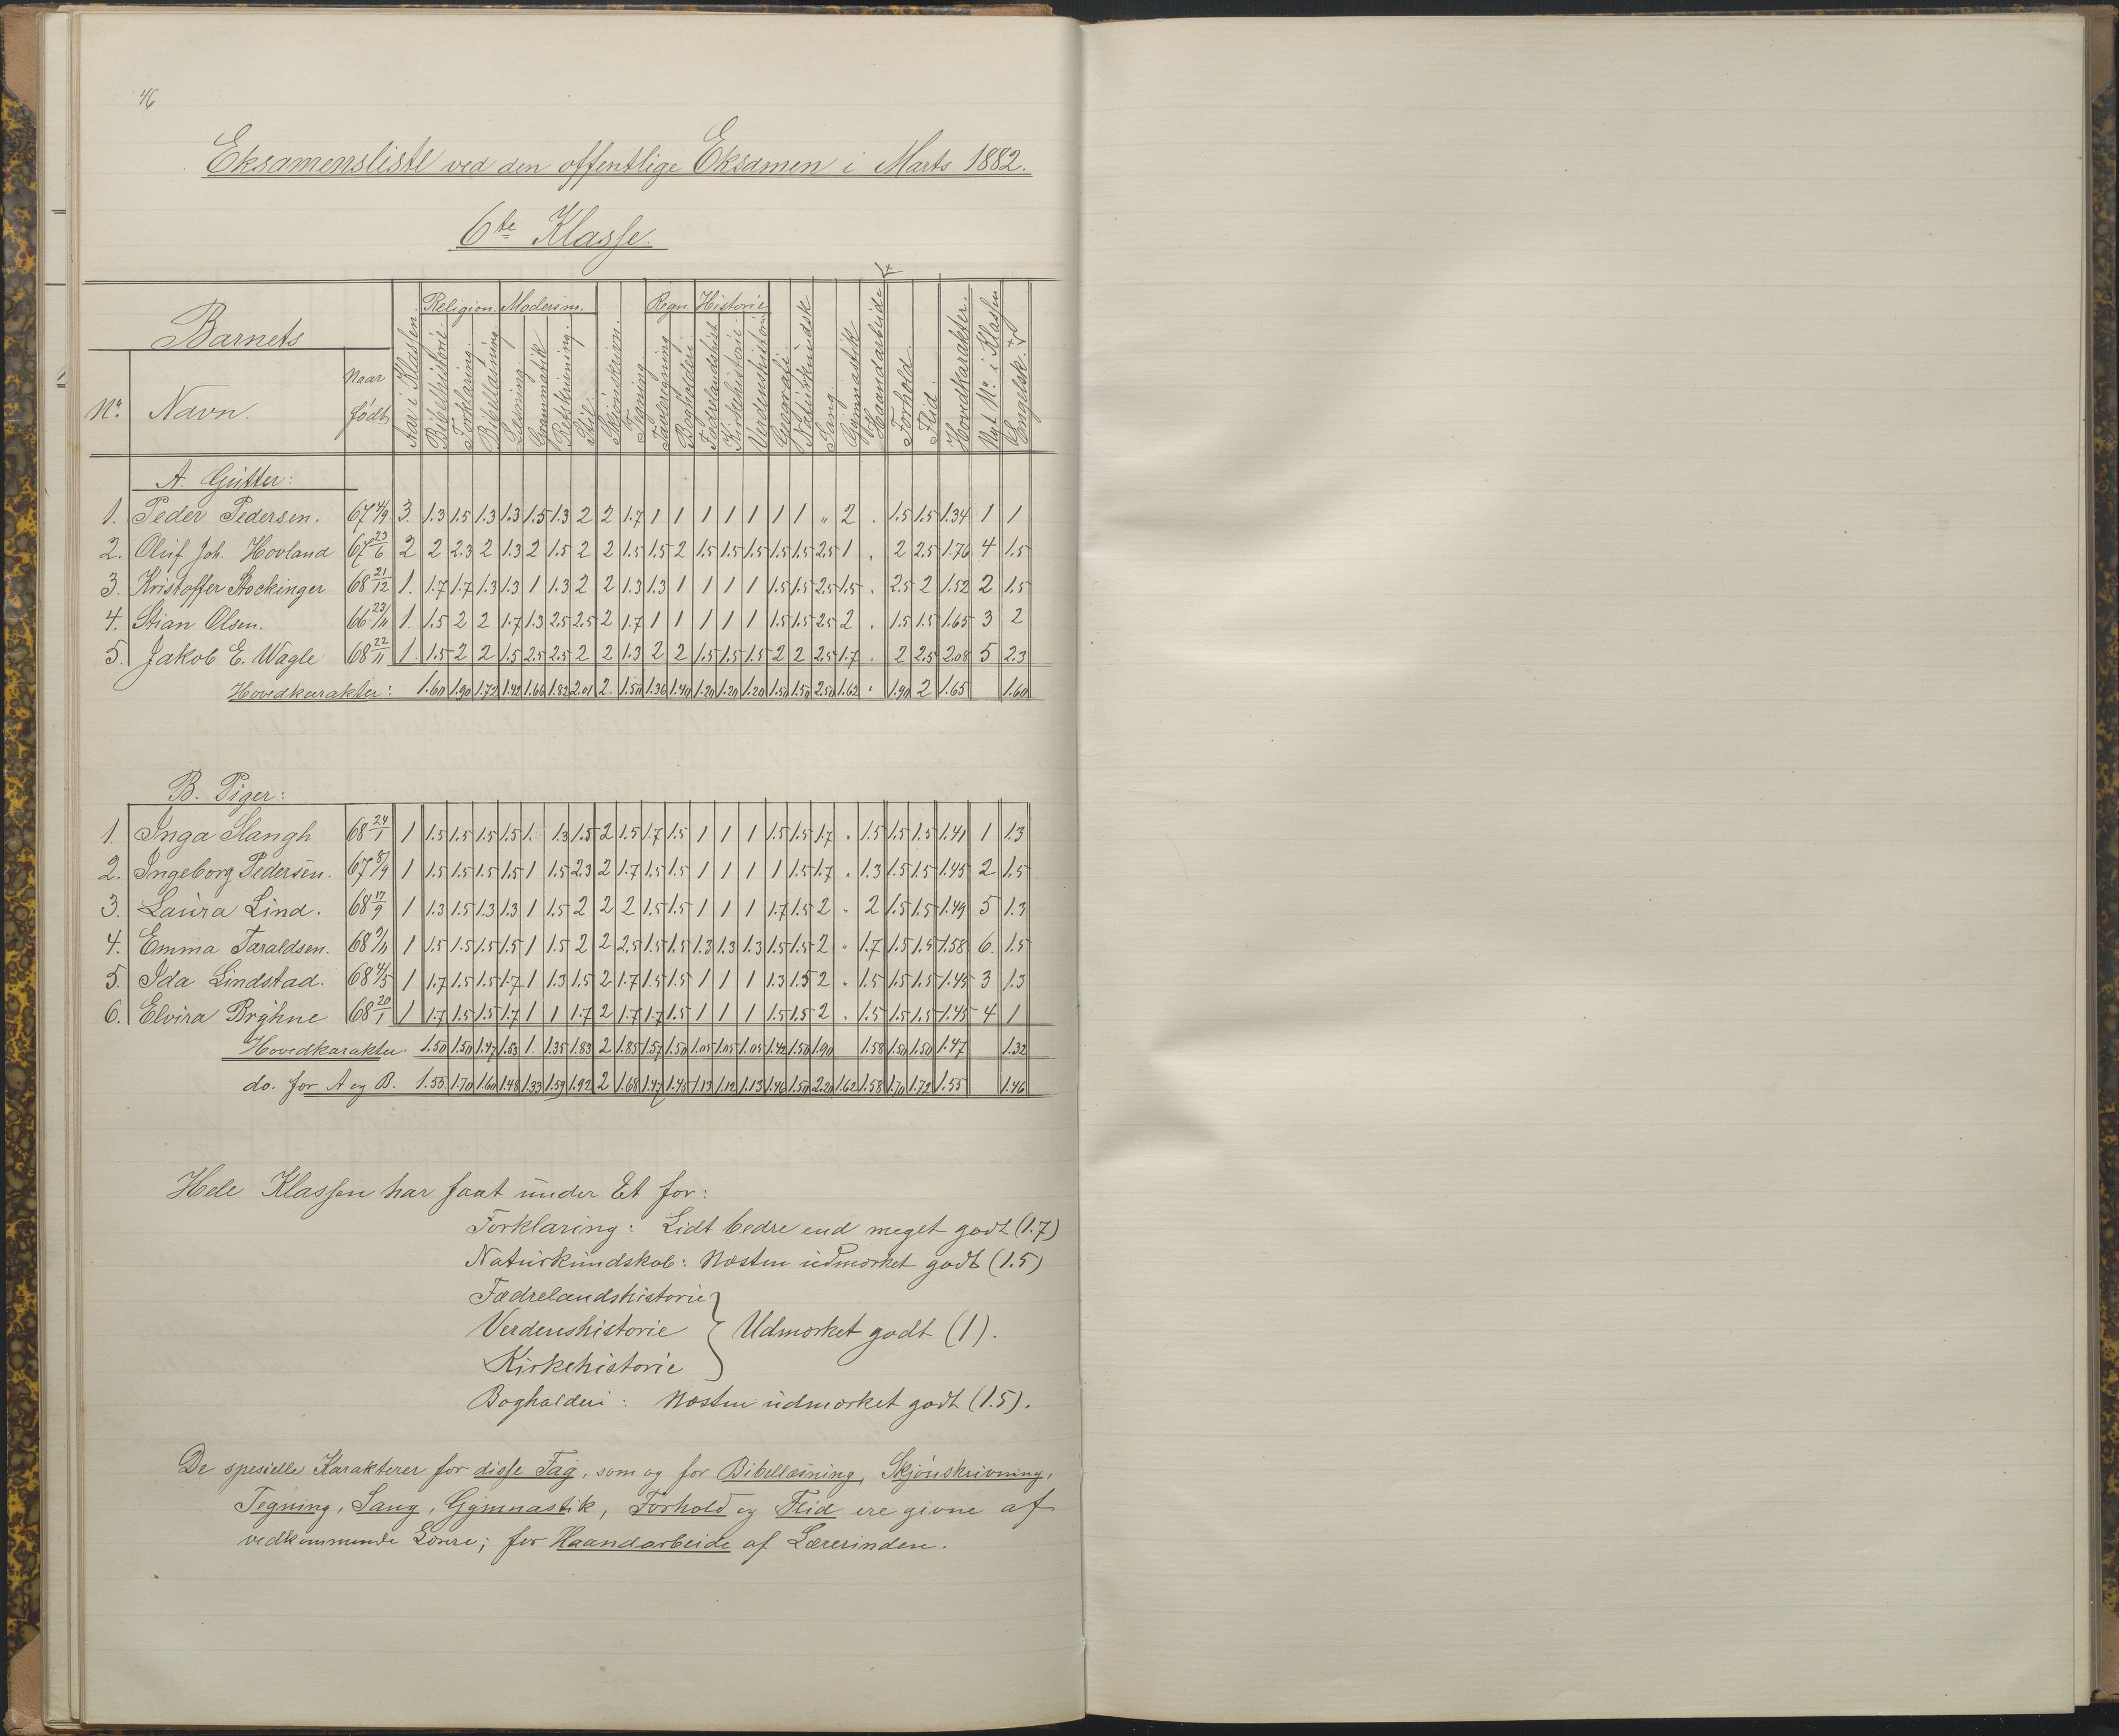 46
Eksamensliste ved den offentlige Eksamen i Marts 1882.
6te Klasse.
Barnets
No. Navn. Naar født Aar i Klassen. Religion. Bibelhistorie. Forklaring. Bibellæsning Modersm. Læsning. Grammatik Retskrivning. Stil. Skjönskrivn. Tegning Regn. Tavleregning Bogholderi. Historie Fædrelandshist Kirkehistorie Verdenshistorie Geografi. Naturkundsk Sang. Gymnastik Haandarbeide Forhold. Flid. Hovedkarakter. Nyt No. i Klassen Engelsk.
A. Gutter:
1. Peder Pedersen. 67 4/9 3. 1.3 1.5 1.3 1.3 1.5 1.3 2 2 1.7 1 1 1 1 1 1 1 „ 2 . 1.5 1.5 1.34 1 1
2. Oluf Joh. Hovland 67 23/6 2 2 2.3 2 1.3 2 1.5 2 2 1.5 1.5 2 1.5 1.5 1.5 1.5 1.5 2.5 1 . 2 2.5 1.76 4 1.5
3. Kristoffer Stockinger 68 21/12 1. 1.7 1.7 1.3 1.3 1 1.3 2 2 1.3 1.3 1 1 1 1 1.5 1.5 2.5 1.5 . 2.5 2 1.52 2 1.5
4. Stian Olsen. 66 23/11 1. 1.5 2 2 1.7 1.3 2.5 2.5 2 1.7 1 1 1 1 1 1.5 1.5 2.5 2 . 1.5 1.5 1.65 3 2
5. Jakob E. Wagle 68 22/11 1 1.5 2 2 1.5 2.5 2.5 2 2 1.3 2 2 1.5 1.5 1.5 2 2 2.5 1.7 . 2 2.5 2.08 5 2.3
Hovedkarakter: 1.60 1.90 1.72 1.42 1.66 1.82 2.01 2. 1.50 1.36 1.40 1.20 1.20 1.20 1.50 1.50 2.50 1.62 . 1.90 2 1.65 1.60
B. Piger:
1. Inga Stangh 68 24/1 1 1.5 1.5 1.5 1.5 1. 1.3 1.5 2 1.5 1.7 1.5 1 1 1 1.5 1.5 1.7 . 1.5 1.5 1.5 1.41 1 1.3
2. Ingeborg Pedersen. 67 8/9 1 1.5 1.5 1.5 1.5 1 1.5 2.3 2 1.7 1.5 1.5 1 1 1 1 1.5 1.7 . 1.3 1.5 1.5 1.45 2 1.5
3. Laura Lind. 68 17/9 1 1.3 1.5 1.3 1.3 1 1.5 2 2 2 1.5 1.5 1 1 1 1.7 1.5 2 . 2 1.5 1.5 1.49 5 1.3
4. Emma Taraldsen. 68 9/11 1 1.5 1.5 1.5 1.5 1 1.5 2 2 2.5 1.5 1.5 1.3 1.3 1.3 1.5 1.5 2 . 1.7 1.5 1.5 1.58 6. 1.5
5. Ida Lindstad. 68 4/5 1 1.7 1.5 1.5 1.7 1 1.3 1.5 2 1.7 1.5 1.5 1 1 1 1.3 1.5 2 . 1.5 1.5 1.5 1.45 3 1.3
6. Elvira Brÿhne 68 20/1 1 1.7 1.5 1.5 1.7 1 1 1.7 2 1.7 1.7 1.5 1 1 1 1.5 1.5 2 . 1.5 1.5 1.5 1.45 4 1
Hovedkarakter. 1.50 1.50 1.47 1.53 1. 1.35 1.83 2 1.85 1.57 1.50 1.05 1.05 1.05 1.42 1.50 1.90 1.58 1.50 1.50 1.47 1.32
do. for A og B. 1.55 1.70 1.60 1.48 1.33 1.59 1.92 2 1.68 1.47 1.45 1.13 1.12 1.13 1.46 1.50 2.20 1.62 1.58 1.70 1.72 1.55 1.46
Hele Klassen har faat under Et for:
Forklaring: Lidt bedre end meget godt (1.7)
Naturkundskab: Næsten udmærket godt (1.5)
Fædrelandshistorie
Verdenshistorie } Udmærket godt (1).
Kirkehistorie
Bogholderi: Næsten udmærket godt (1.5).
De spesielle Karakterer for disse Fag, som og for Bibellæsning, Skjönskrivning,
Tegning, Sang, Gymnastik, Forhold og Flid ere givne af
vedkommende Lærere; for Haandarbeide af Lærerinden.